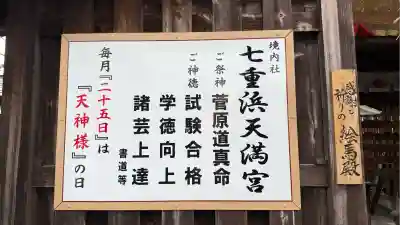 境内社
七重浜天満宮
ご祭神 菅原道真命
ご神徳 試験合格
学徳向上
諸芸上達
書道等
毎月『二十五日』は
『天神様』の日
感謝と
祈りの 絵馬殿